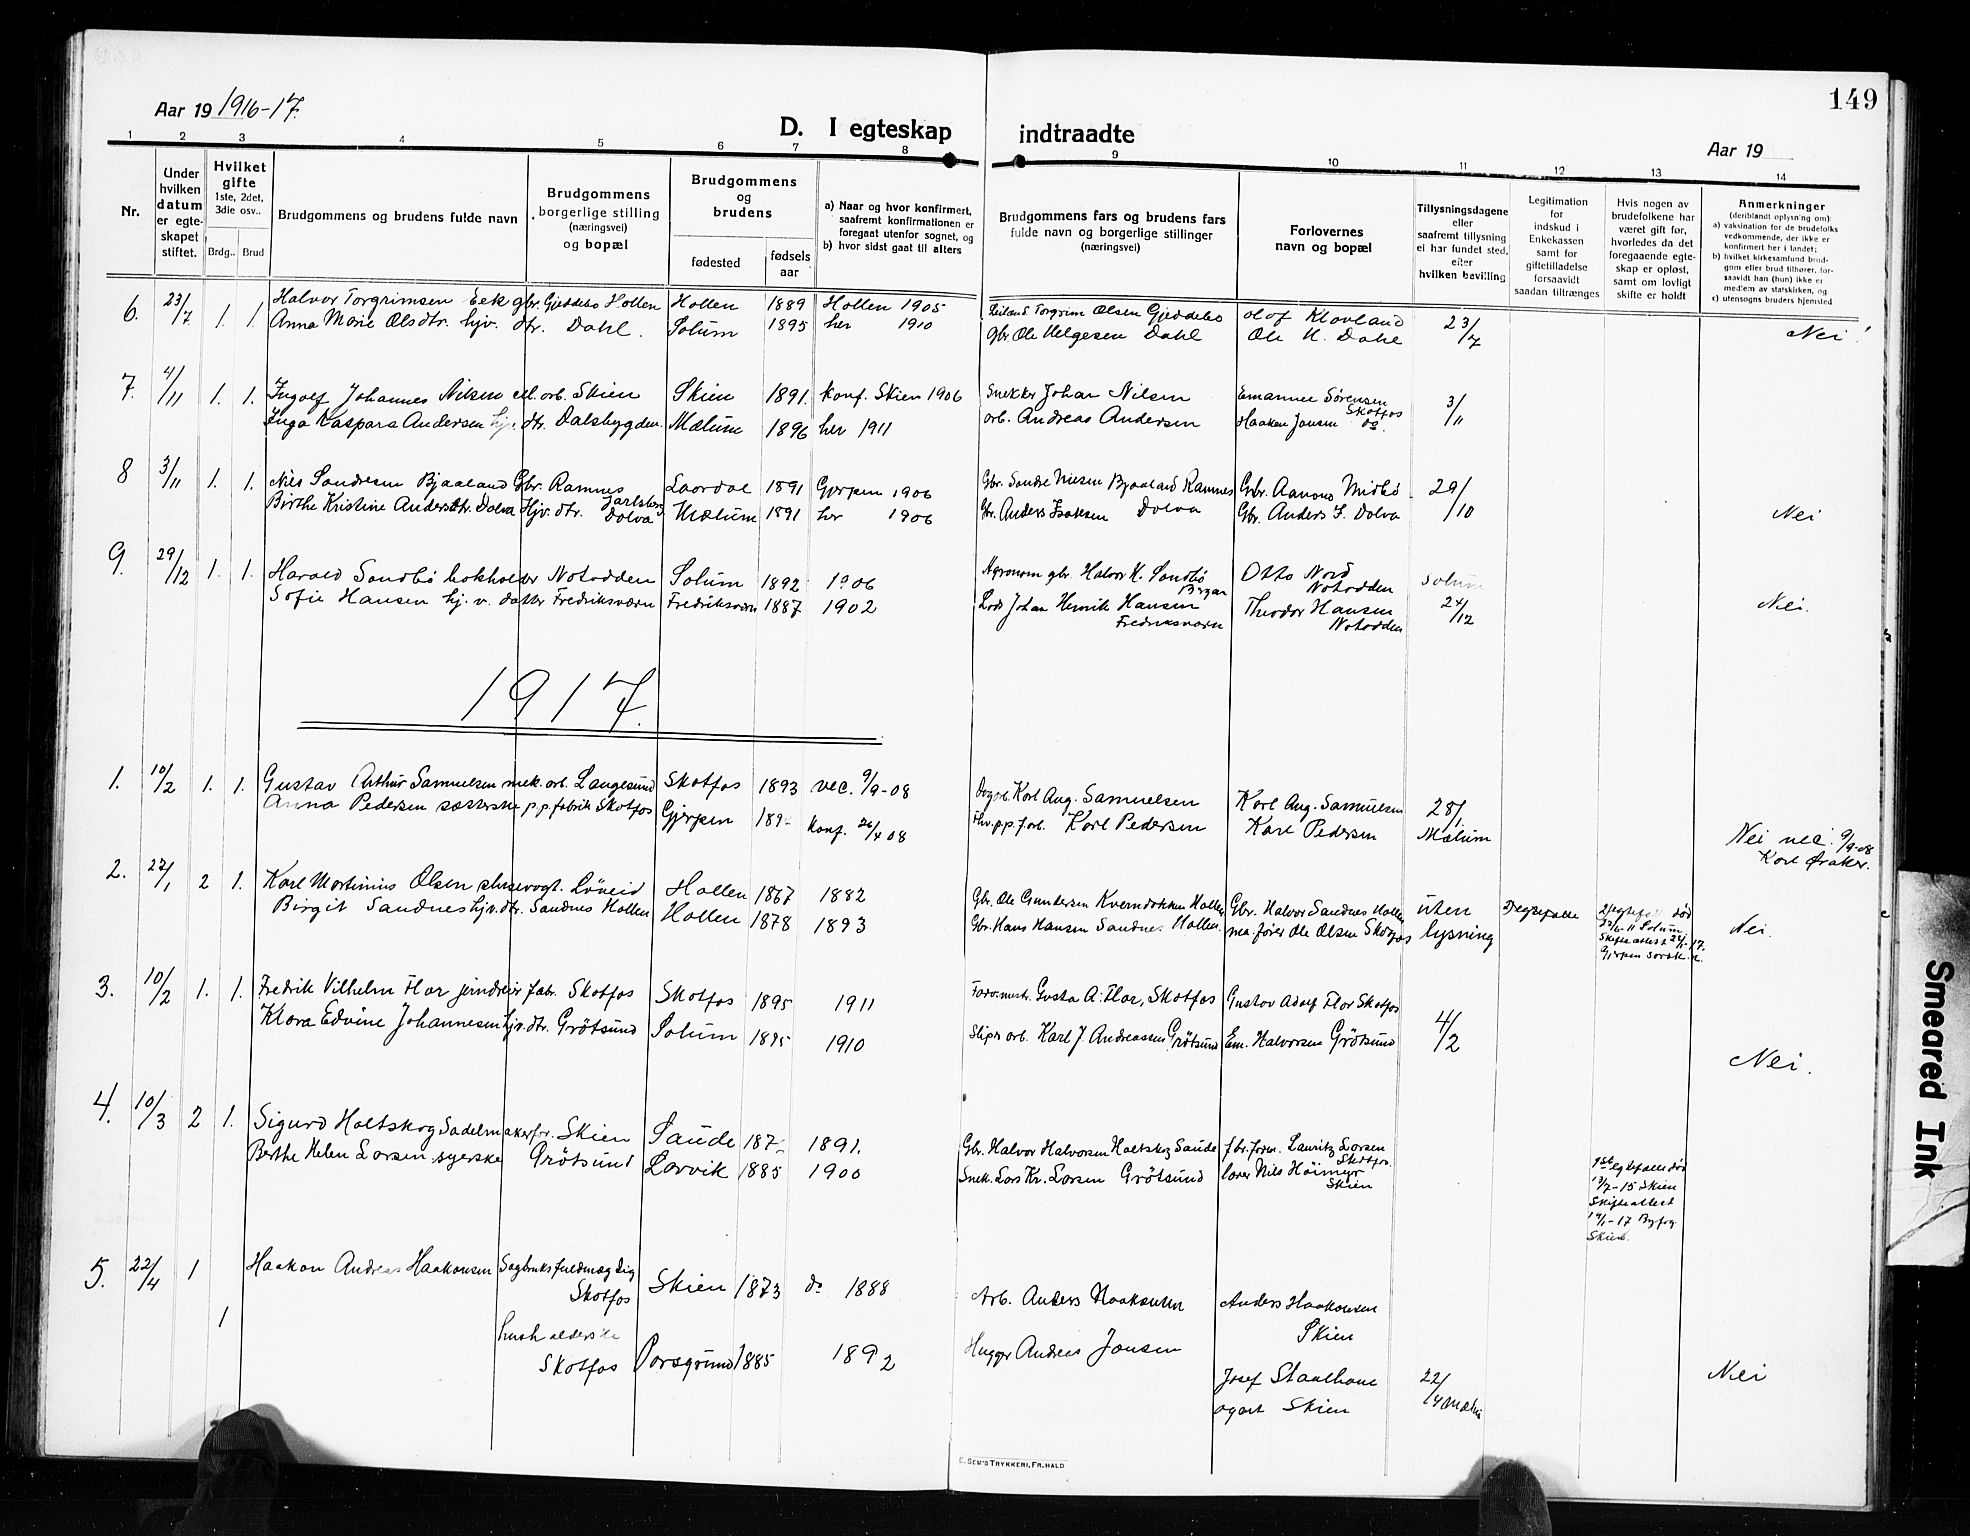 149
Aar 19 1916-17.
D. I egteskap indtraadte
Aar 19
1 2 3 4 5 6 7 8 9 10 11 12 13 14
Nr.
Under hvilken datum er egte-skapet stiftet.
Hvilket gifte 1ste, 2det, 3die osv..
Brdg.. Brud
Brudgommens og brudens fulde navn
Brudgommens borgerlige stilling (næringsvei) og bopæl
Brudgommens og brudens
fødested
fødsels aar
a) Naar og hvor konfirmert, saafremt konfirmationen er foregaat utenfor sognet, og
b) hvor sidst gaat til alters
Brudgommens fars og brudens fars fulde navn og borgerlige stillinger (næringsvei)
Forlovernes navn og bopæl
Tillysningsdagene eller saafremt tillysning ei har fundet sted, efter hvilken bevilling
Legitimation for indskud i Enkekassen samt for giftetilladelse forsaavidt saadan tiltrænges
Hvis nogen av brudefolkene har været gift før, hvorledes da det foregaaende egte-skap er opløst, samt om lovligt skifte er holdt
Anmerkninger (deriblandt oplysning om)
a) vaksination for de brudefolks vedkommende, der ikke er konfirmert her i landet;
b) hvilket kirkesamfund brud-gom eller brud tilhører, for-saavidt han (hun) ikke er medlem av statskirken, og
c) utensogns bruders hjemsted
6. 23/7 1. 1. Halvor Torgrimsen Eek gbr. Gjeddebo Hollen Hollen 1889 Hollen 1905 Torgrim Olsen Gjeddebo Olof Klovland 23/7
Anna Marie Olsdtr. hjv. dtr. Dahl. Solum 1895 her 1910 gbr. Ole Helgesen Dahl Ole H. Dahl Nei!
7. 4/11 1. 1. Ingolf Johannes Nilsen el. arb. Skien Skien 1891. konf. Skien 1906 Snekker Johan Nilsen Emanuel Sørensen Skotfos 3/11
Inga Kaspara Andersen hjv. dtr. Dalsbygden Mælum 1896 her 1911 arb. Andreas Andersen Haaken Jansen do.
8 3/11 1. 1. Nils Sondresen Bjaaland Gbr. Ramnes Jarlsberg Laardal 1891 Gjerpen 1906 Gbr. Sondre Nilsen Bjaaland Ramnes Gbr. Aanond Midbø 29/10
Birthe Kristine Andersdtr. Dolva Hjv. dtr. Dolva Mælum 1891 her 1906 Gbr. Anders Isaksen Dolva Gbr. Anders I. Dolva Nei
9. 29/12 1. 1. Harald Sandbø bokholder Notodden Solum 1892 1906 Agronom gbr. Halvor H. Sandbø Otto Nord Notodden Solum
Sofie Hansen hj. v. datter Fredriksværn Fredriksværn 1887 1902 Lods Johan Henrik Hansen Fredriksværn Theodor Hansen Notodden 24/12 Nei.
1917.
1. 10/2 1. 1. Gustav Arthur Samuelsen mek. arb. Langesund Skotfos 1893 vac. 9/9-08 Karl Aug. Samuelsen Karl Aug. Samuelsen 28/1
Anna Pedersen sætterske p.p. fabrik Skotfos Gjerpen konf. 26/4 08 p.p.f.arb. Karl Pedersen Karl Pedersen Mælum Nei vac. 9/9-08
Karl Aaker.
2. 27/1 2 1. Karl Martinius Olsen slusevogt. Løveid Hollen 1867 1882 Gbr. Ole Gundersen Kverndokken Hollen Gbr. Halvor Sandnes Hollen uten
Birgit Sandnes hjv. dtr. Sandnes Hollen Hollen 1878 1893 Gbr. Hans Hansen Sandnes Hollen. Ole Olsen Skotfos lysning Nei.
3. 10/2 1. 1. Fredrik Vilhelm Flor jerndreier fabr. Skotfos Skotfos 1895 1911 Gusta A. Flor, Skotfos Gustav Adolf Flor Skotfos
Klara Edvine Johannesen hjv. dtr. Grøtsund Solum 1895 1910 Sliper arb. Karl J. Andreassen Grøtsund Em. Halvorsen Grøtsund 4/2 Nei.
4. 10/3 2 1. Sigurd Holtskog Sadelmakerfor. Skien Saude 1891. Gbr. Halvor Halvorsen Holtskog Saude fbr. form. Lauritz Larsen Skotfos.
Berthe Helen Larsen syerske Grøtsund Larvik 1885 1900 Snek. Lars Kr. Larsen Grøtsund Nils Høimyr Skien
1ste egtefælle død
13/7-15 Skien
Skifteattest
17 Byfog.
Skien.
5. 22/4 1 Haakon Andreas Haakonsen Sagbruksfuldmægtig Skotfos Skien 1873 do 1888 Arb. Anders Haakonsen Anders Haakonsen Skien
1 husholderske Skotfos Porsgrund 1885 1892 Hugger Andreas Jansen Josef Staalhane
agent Skien 22/4 Mælum Nei
E. SEM'S TRYKKERI, FR.HALD
Smeared Ink